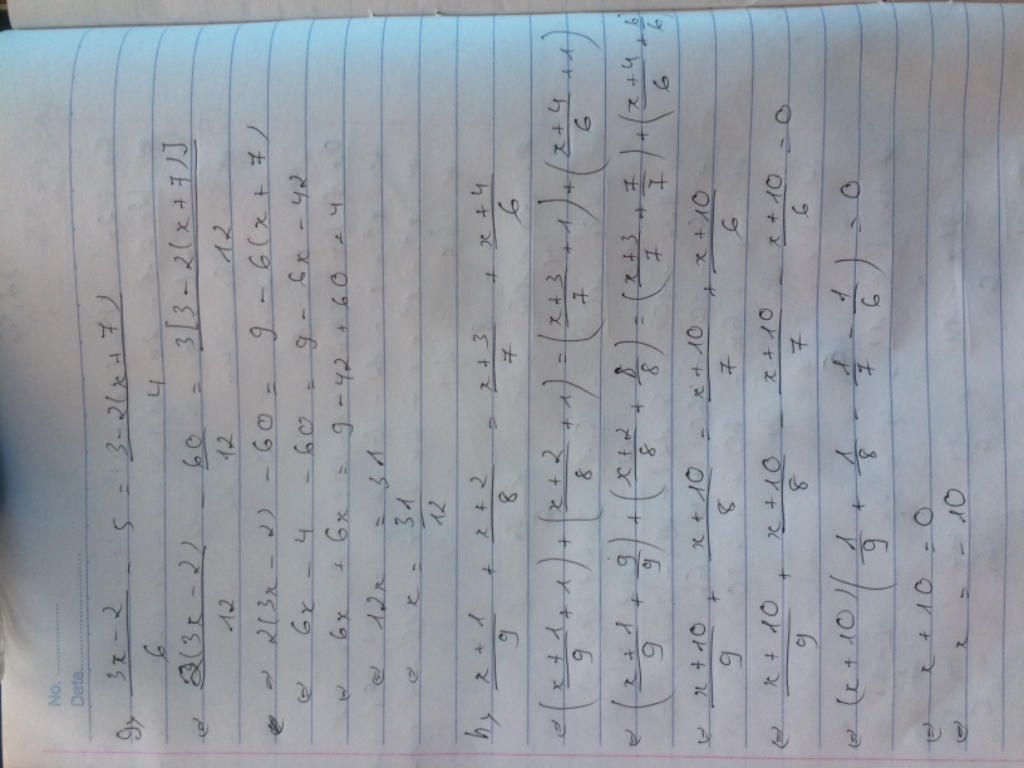 No. ............
Data. ......................
g, (3x - 2)/6 - 5 = (3 - 2(x + 7))/4
⇔ 2(3x - 2)/12 - 60/12 = 3[3 - 2(x + 7)]/12
⇔ 2(3x - 2) - 60 = 9 - 6(x + 7)
⇔ 6x - 4 - 60 = 9 - 6x - 42
⇔ 6x + 6x = 9 - 42 + 60 + 4
⇔ 12x = 31
⇔ x = 31/12
h, (x + 1)/9 + (x + 2)/8 = (x + 3)/7 + (x + 4)/6
⇔ ((x + 1)/9 + 1) + ((x + 2)/8 + 1) = ((x + 3)/7 + 1) + ((x + 4)/6 + 1)
⇔ ((x + 1)/9 + 9/9) + ((x + 2)/8 + 8/8) = ((x + 3)/7 + 7/7) + ((x + 4)/6 + 6/6
⇔ (x + 10)/9 + (x + 10)/8 = (x + 10)/7 + (x + 10)/6
⇔ (x + 10)/9 + (x + 10)/8 - (x + 10)/7 - (x + 10)/6 = 0
⇔ (x + 10)(1/9 + 1/8 - 1/7 - 1/6) = 0
⇔ x + 10 = 0
⇔ x = - 10